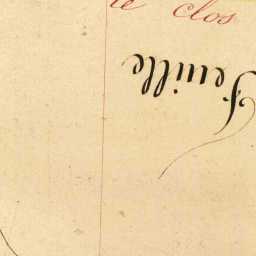 le clos
Feuille